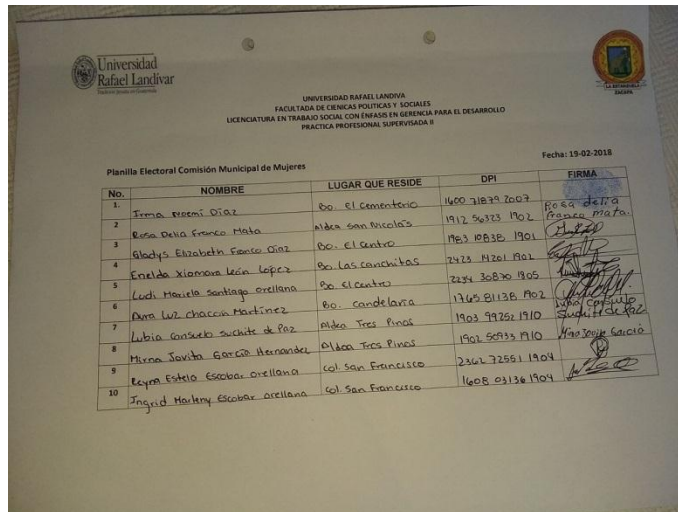 Universidad
Rafael Landívar
LA ESTANZUELA
ZACAPA
UNIVERSIDAD RAFAEL LANDIVA
FACULTADA DE CIENICAS POLITICAS Y SOCIALES
LICENCIATURA EN TRABAJO SOCIAL CON ÉNFASIS EN GERENCIA PARA EL DESARROLLO
PRACTICA PROFESIONAL SUPERVISADA II
Fecha: 19-02-2018
Planilla Electoral Comisión Municipal de Mujeres
No. NOMBRE LUGAR QUE RESIDE DPI FIRMA
1. Irma Noemi Díaz Bo. el cementerio 1600 71879 2007
2 Rosa Delia Franco Mata Aldea San Nicolaís 1912 56323 1902 Rosa delia Franco Mata.
3 Gladys Elizabeth Franco Diaz Bo. el Centro 1983 10838 1901
4 Enelda Xiomara León López Bo. Las canchitas 2423 14201 1902
5 Ludi Mariela Santiago orellana Bo. el centro 2234 30870 1805
6 Aura Luz chacón Martínez Bo. candelaria 1765 81138 1902
7 Lubia Consuelo Suchite de Paz Aldea Tres Pinos 1903 99252 1910 Lubia Consuelo Suchite de Paz
8 Mirna Jovita García Hernandez Aldea Tres Pinos 1902 50933 1910 García
9 Reyna Estela Escobar orellana col. San Francisco 2362 72551 1904
10 Ingrid Marleny Escobar orellana col. San Francisco 1608 03136 1904